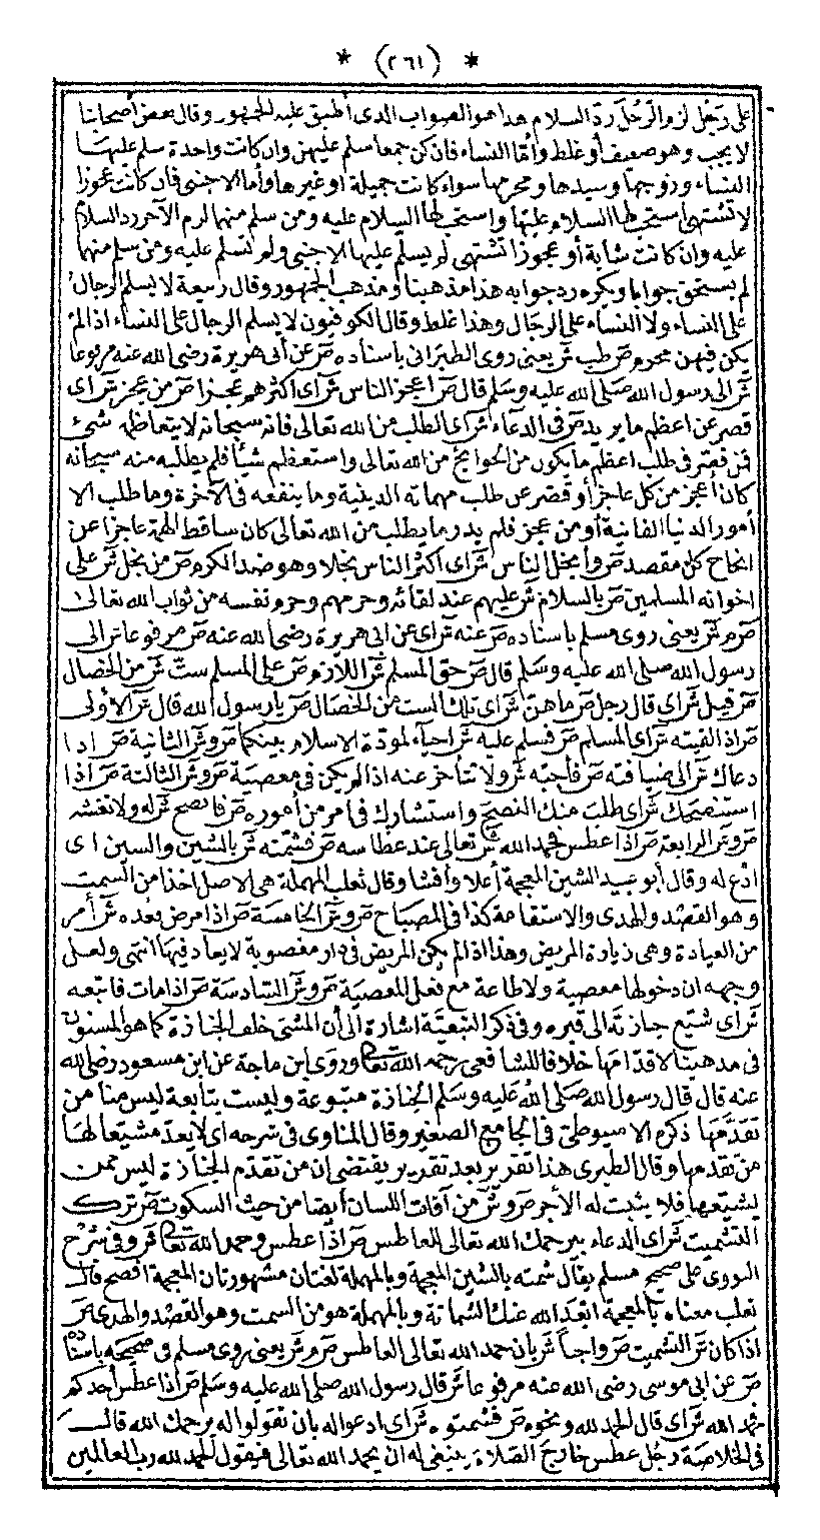 * (٢٦١) *
على رجل لزم الرجل رد السلام هذا هو الصواب الذى أطبق عليه الجمهور وقال بعض أصحابنا
لا يجب وهو ضعيف أو غلط وأما النساء فان كن جمعا سلم عليهن وان كانت واحدة سلم عليها
النساء وزوجها وسيدها ومحرمها سواء كانت جميلة او غيرها وأما الاجنبى فان كانت عجوزا
لا تشتهى استحب لها السلام عليها واستحب لها السلام عليه ومن سلم منهما لزم الآخر رد السلام
عليه وان كانت شابة أو عجوزا تشتهى لم يسلم عليها الاجنبى ولم تسلم عليه ومن سلم منهما
لم يستحق جوابا ويكره رد جوابه هذا مذهبنا ومذهب الجمهور وقال ربيعة لا يسلم الرجال
على النساء ولا النساء على الرجال وهذا غلط وقال الكوفيون لا يسلم الرجال على النساء اذا لم
يكن فيهن محرم ص طب ش يعنى روى الطبرانى باسناده ص عن أبى هريرة رضى الله عنه مرفوعا
ش الى رسول الله صلى الله عليه وسلم قال ص اعجز الناس ش أى اكثرهم عجزا ص من عجز ش أى
قصر عن اعظم ما يريد ص فى الدعاء ش أى الطلب من الله تعالى فانه سبحانه لا يتعاظمه شئ
فمن قصر فى طلب اعظم ما يكون من الحوايج من الله تعالى واستعظم شيأ فلم يطلبه منه سبحانه
كان أعجز من كل عاجز أو قصر عن طلب مهماته الدينية وما ينفعه فى الآخرة وما طلب الا
أمور الدنيا الفانية أو من عجز فلم يدر ما يطلب من الله تعالى كان ساقط الهمة عاجزا عن
انجاح كل مقصد ص وأبخل الناس ش أى اكثر الناس بخلا وهو ضد الكرم ص من بخل ش على
اخوانه المسلمين ص بالسلام ش عليهم عند لقائهم وحرمهم وحرم نفسه من ثواب الله تعالى
ص م ش يعنى روى مسلم باسناده ص عنه ش أى عن ابى هريرة رضى الله عنه ص مرفوعا ش الى
رسول الله صلى الله عليه وسلم قال ص حق المسلم ش اللازم ص على المسلم ست ش من الخصال
ص قيل ش أى قال رجل ص ما هن ش أى تلك الست من الخصال ص يا رسول الله قال ش الأولى
ص اذا لقيته ش أى المسلم ص فسلم عليه ش احياء لمودة الاسلام بينكما ص و ش الثانية ص اذا
دعاك ش الى ضيافته ص فأجبه ش ولا تتأخر عنه اذا لم يكن فى معصية ص و ش الثالثة ص اذا
استنصحك ش أى طلب منك النصح واستشارك فى امر من أموره ص فانصح ش له ولا تغشه
ص و ش الرابعة ص اذا عطس فحمد الله ش تعالى عند عطاسه ص فشمته ش بالشين والسين اى
ادع له وقال أبو عبيد الشين المعجمة أعلا وأفشا وقال ثعلب المهملة هى الاصل اخذا من السمت
وهو القصد والهدى والاستقامة كذا فى المصباح ص و ش الخامسة ص اذا مرض فعده ش أمر
من العيادة وهى زيارة المريض وهذا اذا لم يكن المريض فى دار مغصوبة لا يعاد فيها انتهى ولعل
وجهه ان دخولها معصية ولا طاعة مع فعل المعصية ص و ش السادسة ص اذا مات فاتبعه
ش أى شيع جنازته الى قبره وفى ذكر التبعية اشارة الى أن المشى خلف الجنازة كما هو المسنون
فى مذهبنا لا قدامها خلافا للشافعى رحمه الله تعالى وروى ابن ماجة عن ابن مسعود رضى الله
عنه قال قال رسول الله صلى الله عليه وسلم الجنازة متبوعة وليست بتابعة ليس منا من
تقدمها ذكره الاسيوطى فى الجامع الصغير وقال المناوى فى شرحه اى لا يعد مشيعا لها
من تقدمها وقال الطبرى هذا تقرير بعد تقرير يقتضى ان من تقدم الجنازة ليس ممن
يشيعها فلا يثبت له الأجر ص و ش من آفات اللسان أيضا من حيث السكوت ص ترك
التشميت ش أى الدعاء بيرحمك الله تعالى للعاطس ص اذا عطس وحمد الله تعالى ش وفى شرح
النووى على صحيح مسلم يقال شمته بالشين المعجمة وبالمهملة لغتان مشهورتان المعجمة افصح قال
ثعلب معناه بالمعجمة ابعد الله عنك الشماتة وبالمهملة هو من السمت وهو القصد والهدى ص
اذا كان ش التشميت ص واجبا ش بان حمد الله تعالى العاطس ص م ش يعنى روى مسلم فى صحيحه باسناده
ص عن ابى موسى رضى الله عنه مرفوعا ش قال رسول الله صلى الله عليه وسلم ص اذا عطس أحدكم
فحمد الله ش أى قال الحمد لله ونحوه ص فشمتوه ش أى ادعوا له بان تقولوا له يرحمك الله قال
فى الخلاصة رجل عطس خارج الصلاة ينبغى له ان يحمد الله تعالى فيقول الحمد لله رب العالمين